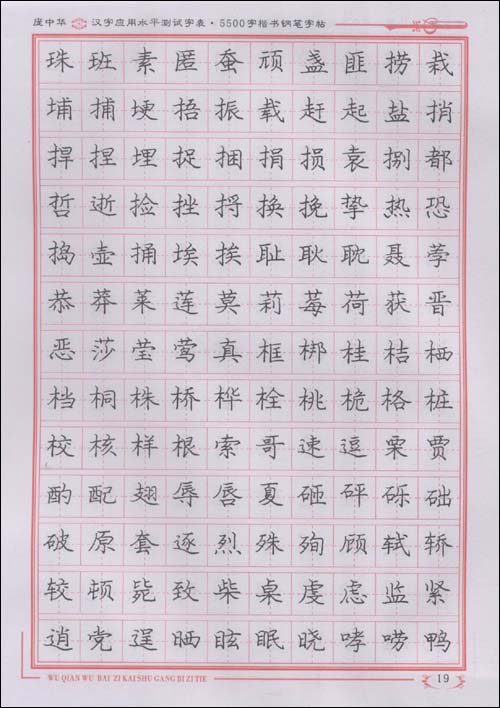 庞中华 汉字应用水平测试字表·5500字楷书钢笔字帖
珠班素匿蚕顽盏匪捞栽
埔捕埂捂振载赶起盐捎
捍捏埋捉捆捐损袁捌都
哲逝捡挫捋换挽挚热恐
捣壶捅埃挨耻耿耽聂荸
恭莽莱莲莫莉莓荷获晋
恶莎莹莺真框梆桂桔栖
档桐株桥桦栓桃桅格桩
校核样根索哥速逗栗贾
酌配翅辱唇夏砸砰砾础
破原套逐烈殊殉顾轼轿
较顿毙致柴桌虔虑监紧
逍党逞晒眩眠晓哮唠鸭
WU QIAN WU BAI ZI KAI SHU GANG BI ZI TIE
19